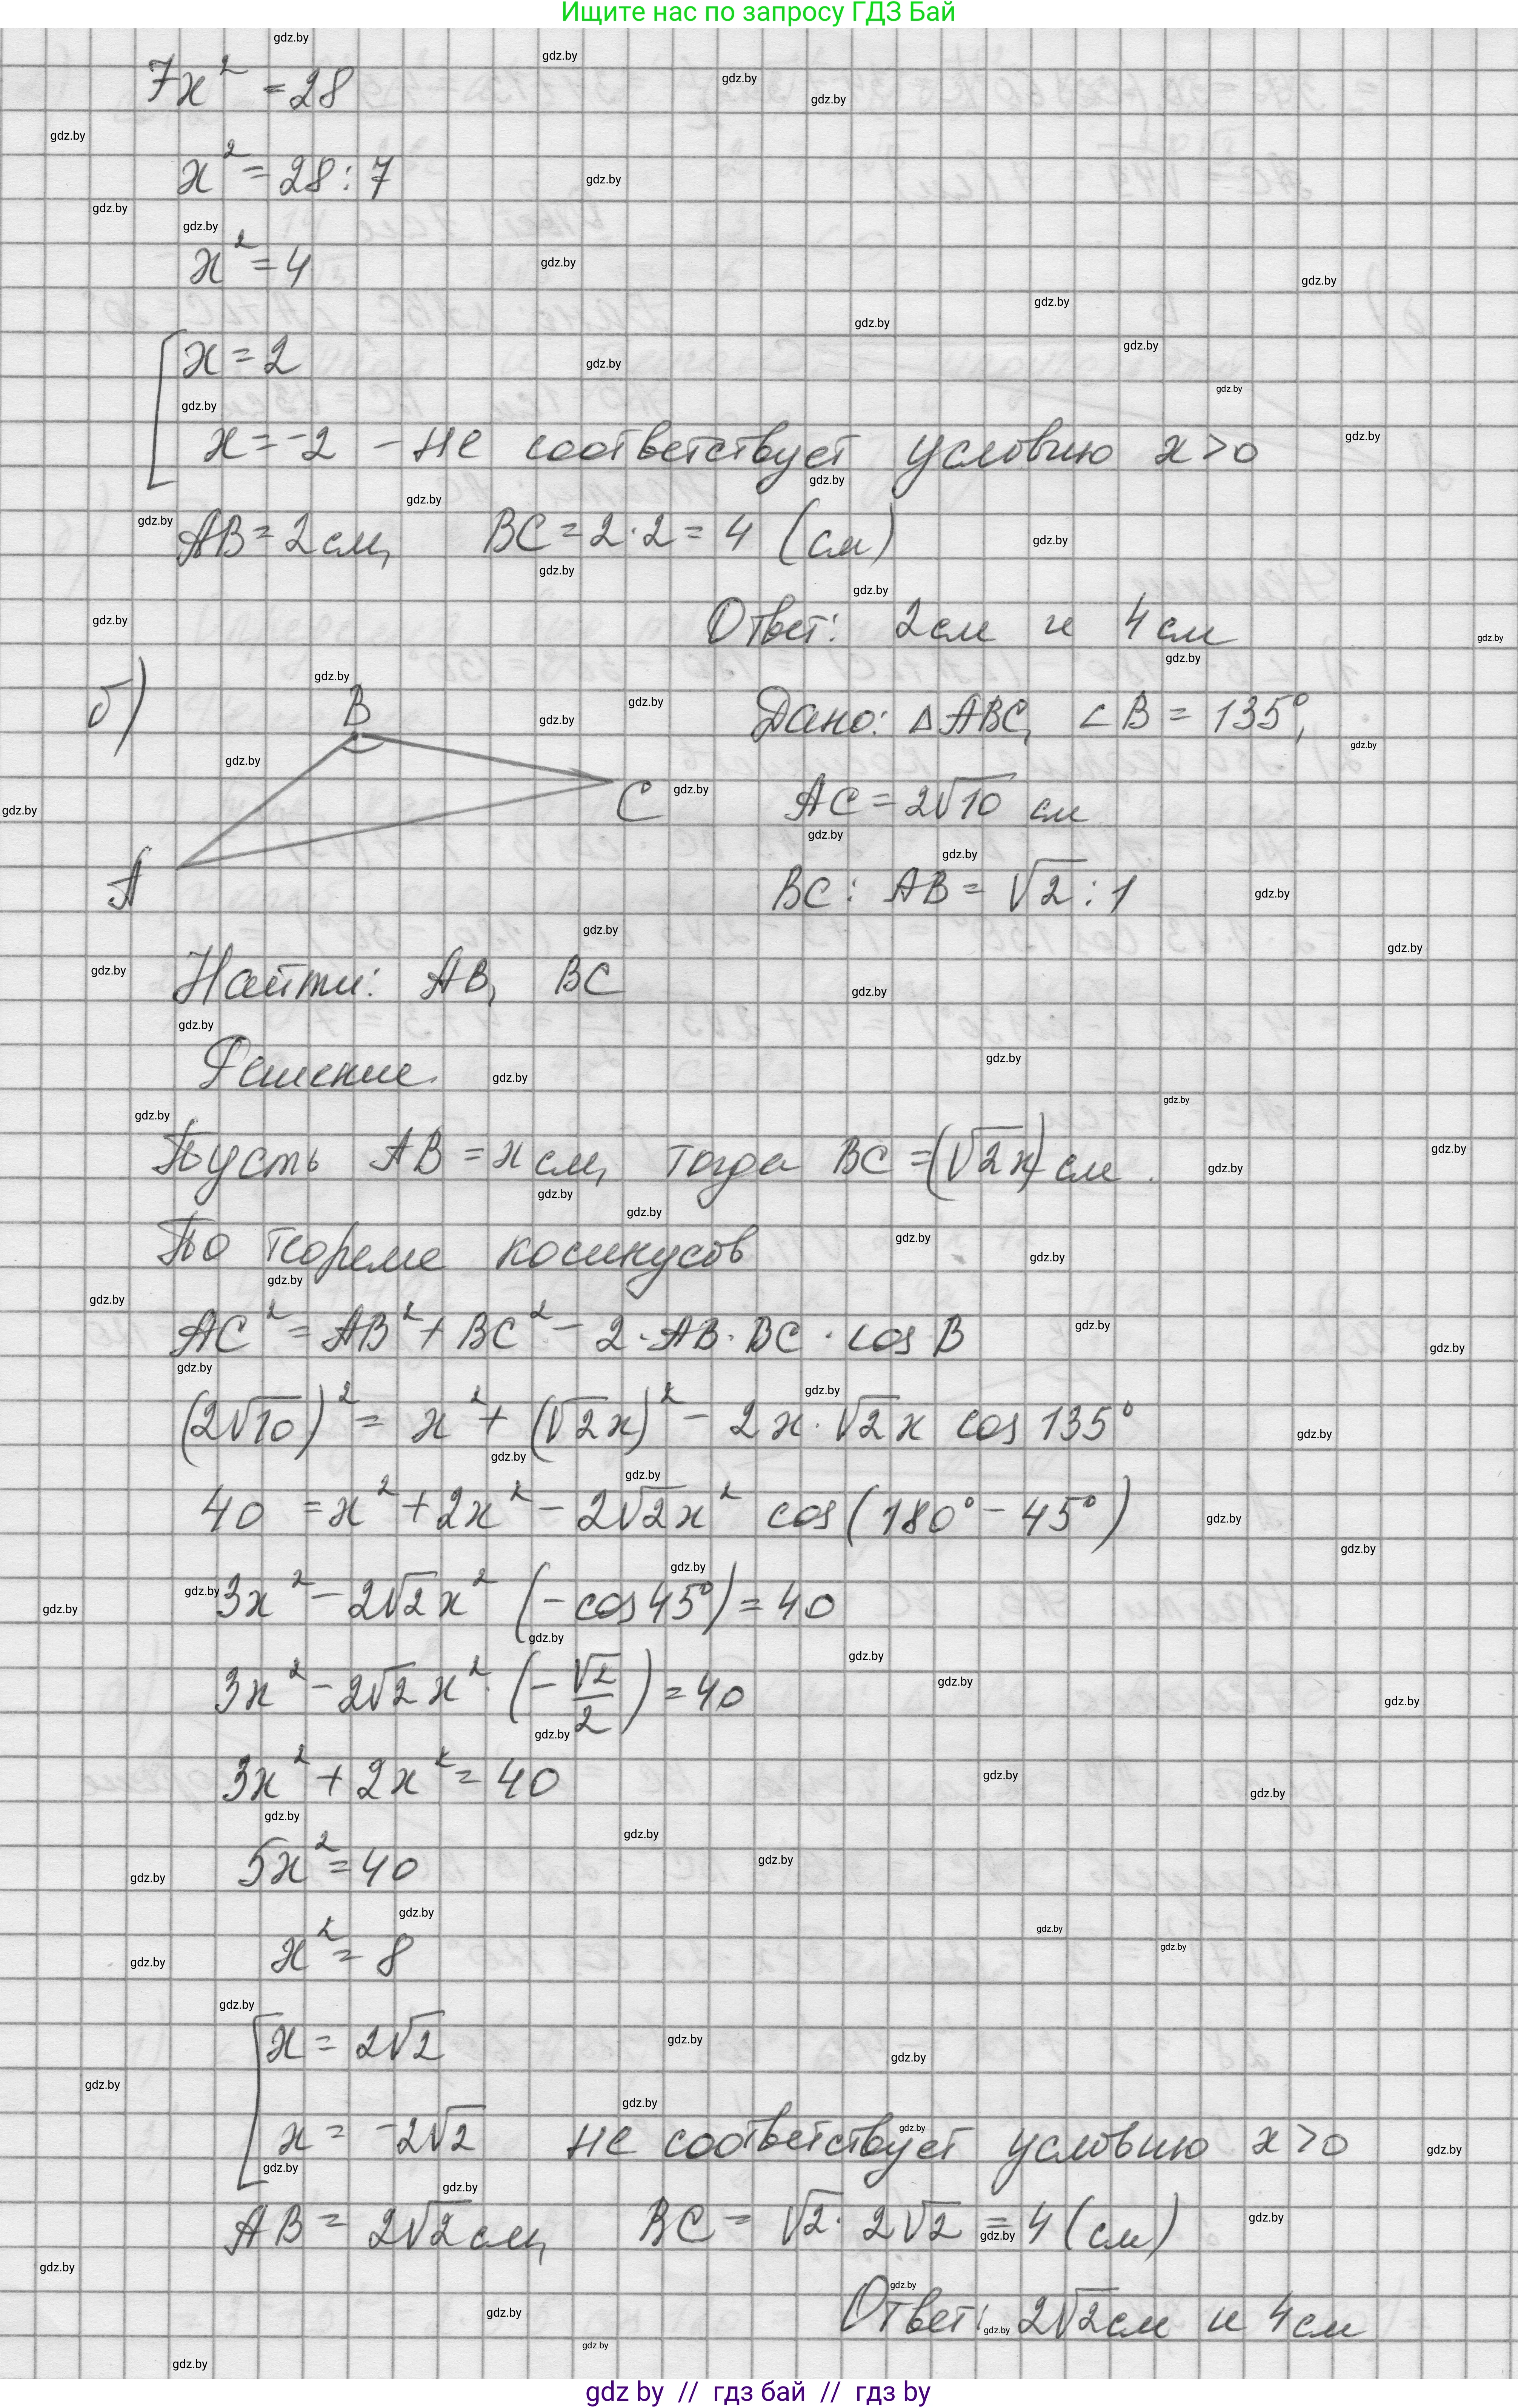 Ищите нас по запросу ГДЗ Бай
7x² = 28
x² = 28 : 7
x² = 4
x = 2
x = -2 - не соответствует условию x > 0
AB = 2 см, BC = 2 · 2 = 4 (см)
Ответ: 2 см и 4 см
б)
B
C
A
Дано: △ABC, ∠B = 135°,
AC = 2√10 см
BC : AB = √2 : 1
Найти: AB, BC
Решение.
Пусть AB = x см, тогда BC = (√2x) см.
По теореме косинусов
AC² = AB² + BC² - 2 · AB · BC · cos B
(2√10)² = x² + (√2x)² - 2x · √2x cos 135°
40 = x² + 2x² - 2√2x² cos(180° - 45°)
3x² - 2√2x² (-cos 45°) = 40
3x² - 2√2x² · (-√2/2) = 40
3x² + 2x² = 40
5x² = 40
x² = 8
x = 2√2
x = -2√2 не соответствует условию x > 0
AB = 2√2 см, BC = √2 · 2√2 = 4 (см)
Ответ: 2√2 см и 4 см
gdz by // гдз бай // гдз by